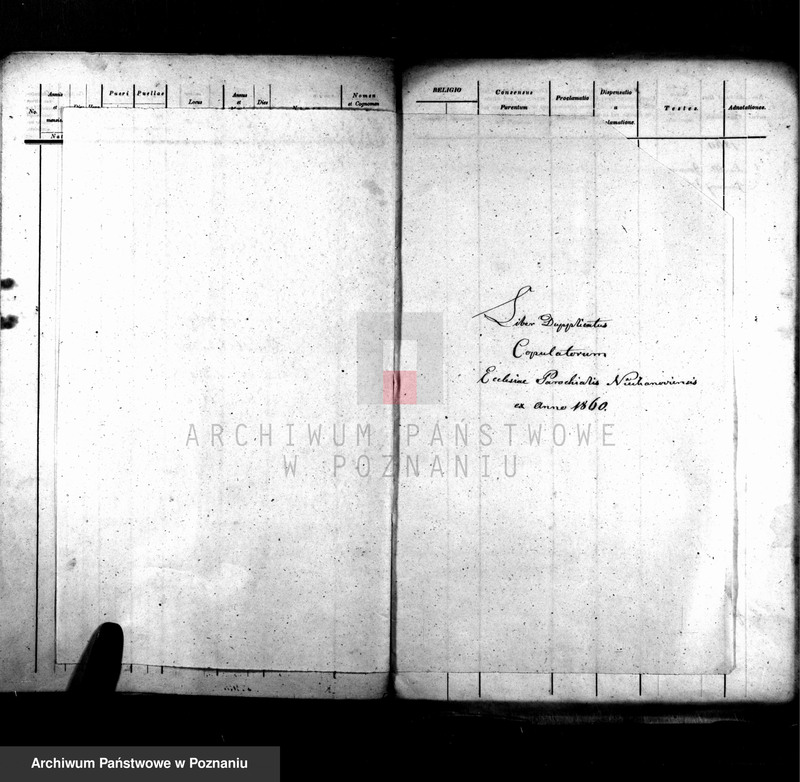 No.
Annis et mensis
Pueri
Puellae
Nat
Locus
Annus et
Dies
Nomen et Cognomen
RELIGIO
Consensus Parentum
Proclamatio
Dispensatio a
clamatione.
Testes.
Adnotationes.
Liber Dupplicatus
Copulatorum
Ecclesiae Parochialis
ex Anno 1860.
ARCHIWUM PAŃSTWOWE
W POZNANIU
Archiwum Państwowe w Poznaniu